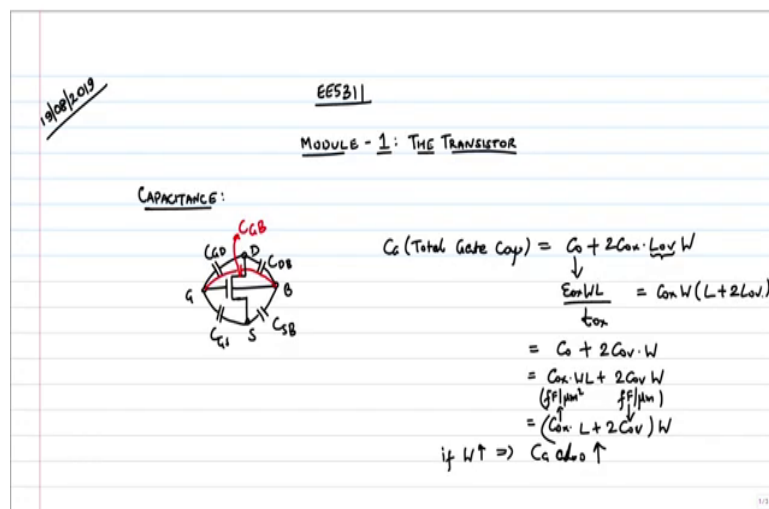 19/08/2019
EE5311
MODULE - 1: THE TRANSISTOR
CAPACITANCE:
CGB
CGD D CDB
G B
CGS S CSB
CG (Total Gate Cap) = Co + 2Cox. Lov W
↓
εox WL / tox = Cox W (L + 2Lov)
= Co + 2Cov. W
= Cox. WL + 2Cov W
(fF/μm² fF/μm)
= (Cox. L + 2Cov) W
if W↑ => CG also ↑
1/3